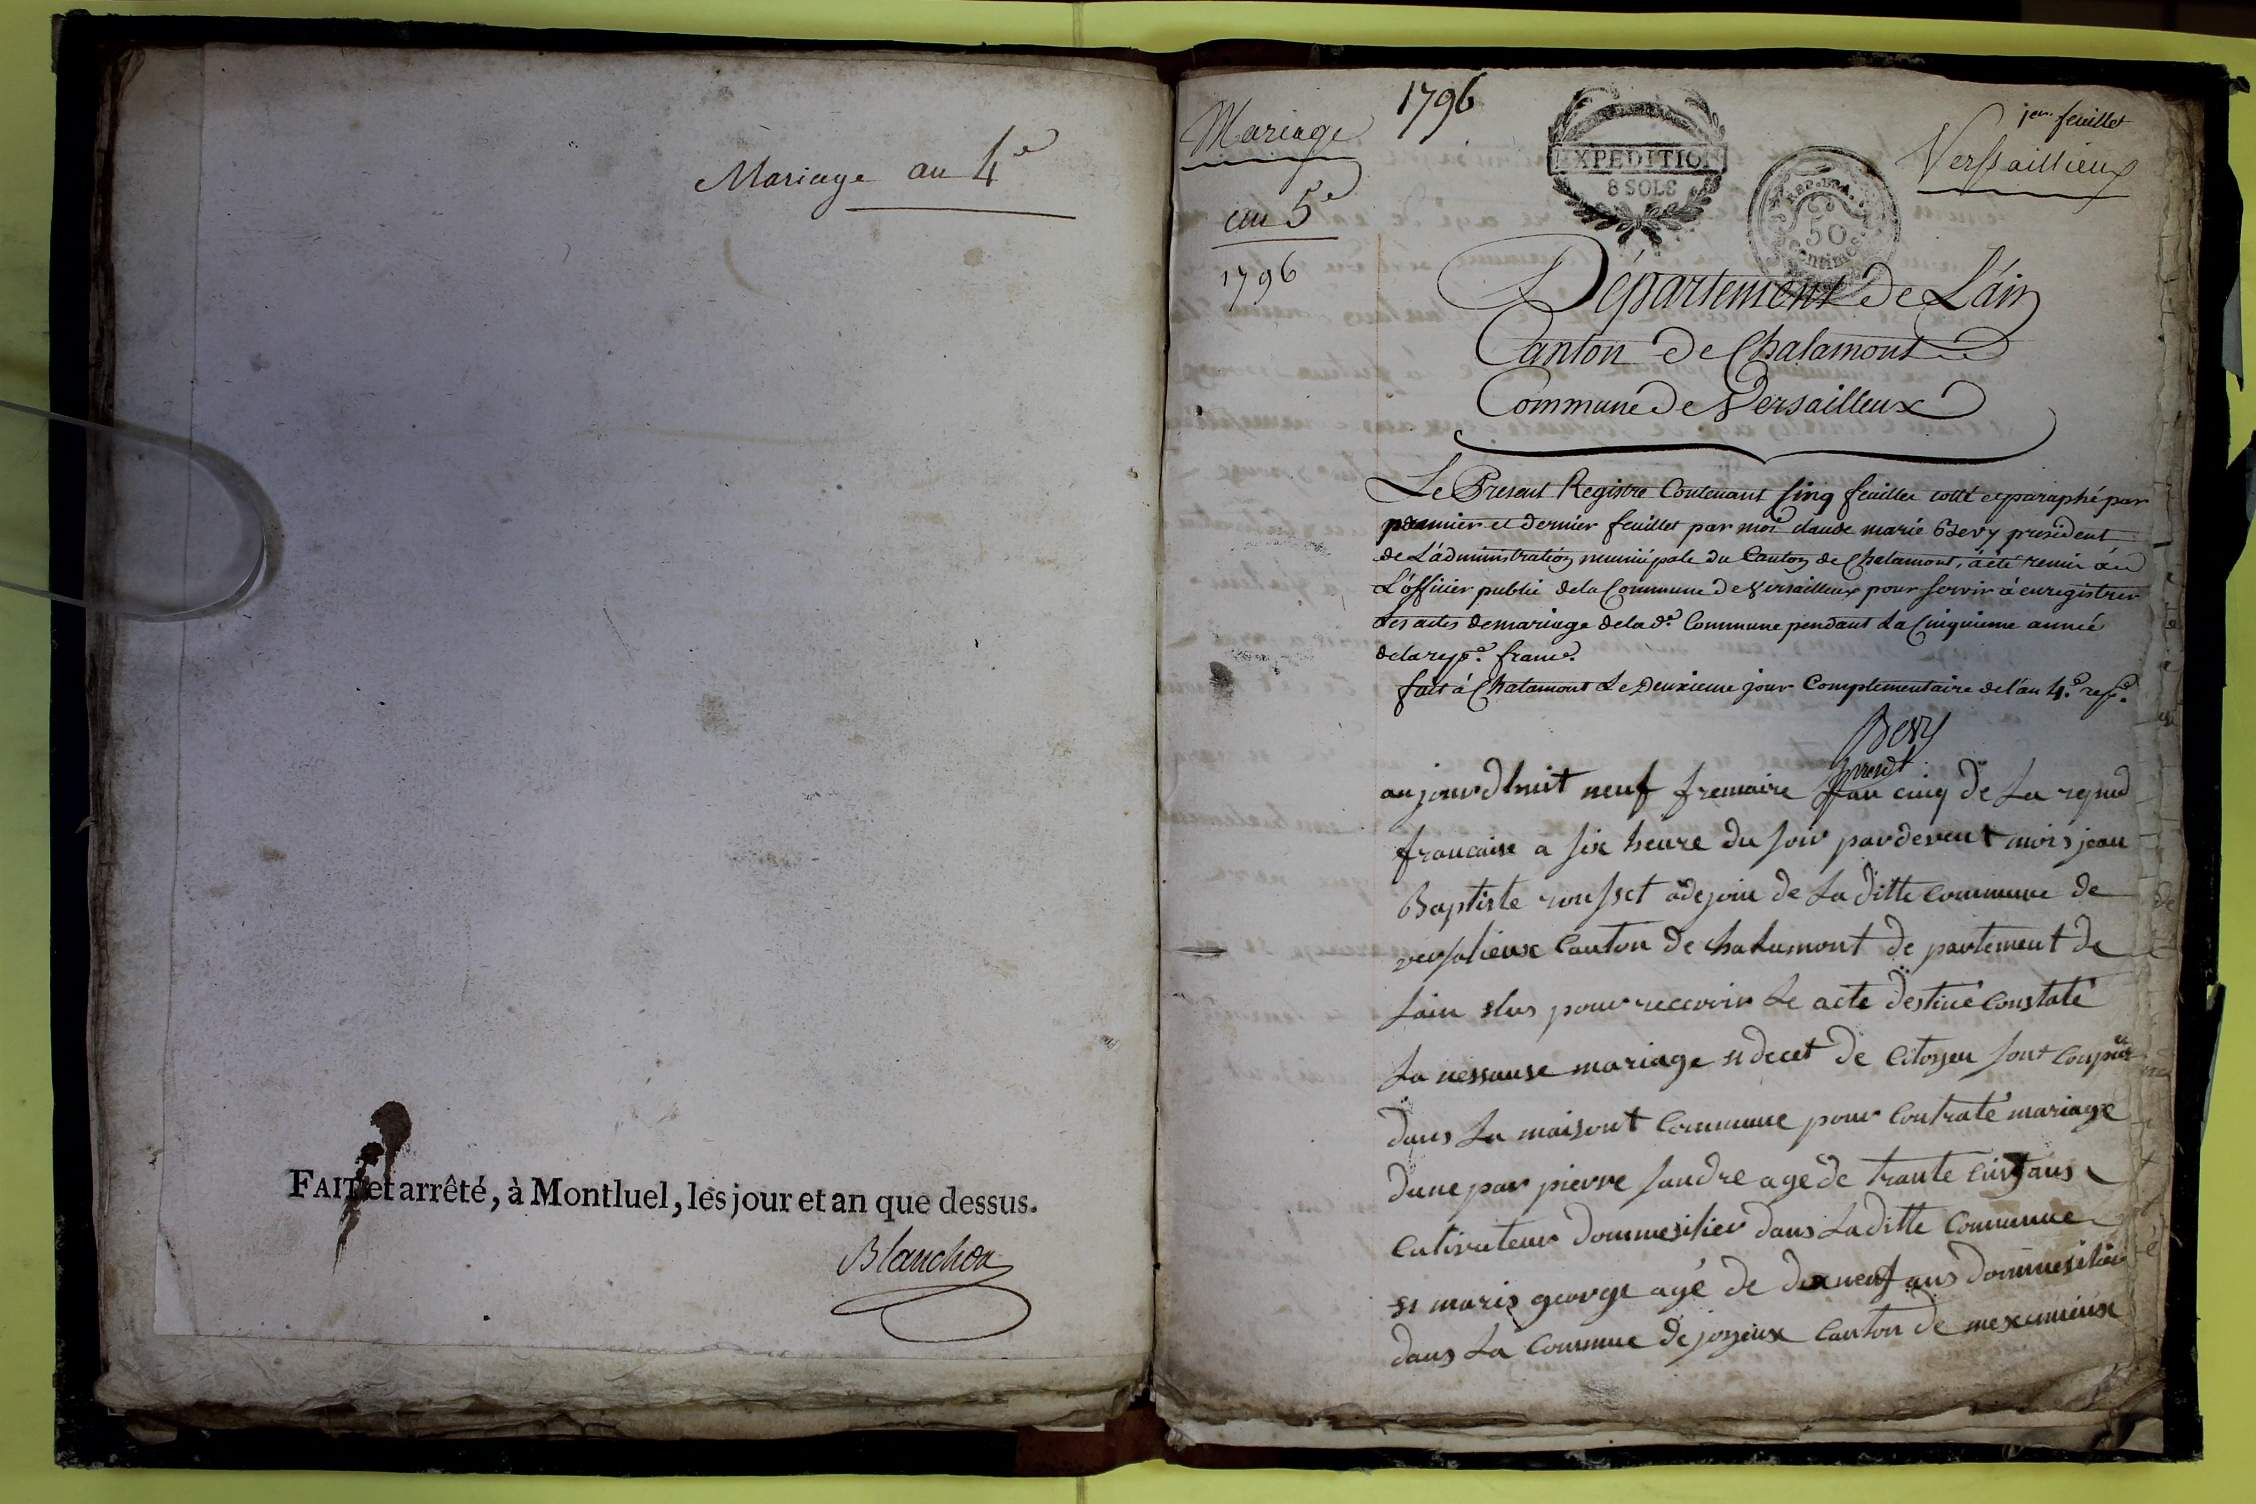 Mariage an 4e
FAIT et arrêté, à Montluel, les jour et an que dessus.
Blanchon
Mariage
an 5e
1796
1796
EXPEDITION
8 SOLS
REP. FRA.
50
Centimes
1er feuillet
Versaillieux
Département de L'áin
Canton de Chalamont
Commune de Versailleux
Le Présent Registre Contenant Cinq feuillet cotté et paraphé par
premier et dernier feuillet par moi claude marie Bevy president
de L'administration municipale du Canton de Chalamont, a été remis a
L'officier public de la Commune de Versailleux pour servir à enregistrer
les actes de mariage de la de. Commune pendant La Cinquieme année
de la repe. frane.
fait à Chalamont Le Deuxieme jour Complementaire de l'an 4e. repe.
Bevy
presdt
aujourdhuit neuf fremaire Lan cinq de La repud
francaise a six heure du soir pardevent mois jean
Baptiste rousset adejoin de La ditte commune de
versalieux Canton de chalamont de partement de
Lain elus pour recevoir Le acte destiné Constaté
La nessanse mariage et decet de Citoyen sont
dans La maisont Commune pour Contraté mariage
dune par pierre Landre age de trante Cinq ans
Cutivateur dommesilier dans La ditte Commune
et marie george agé de deneuf ans dommesilier
dans La Commune de joyeux Canton de mexcimieux